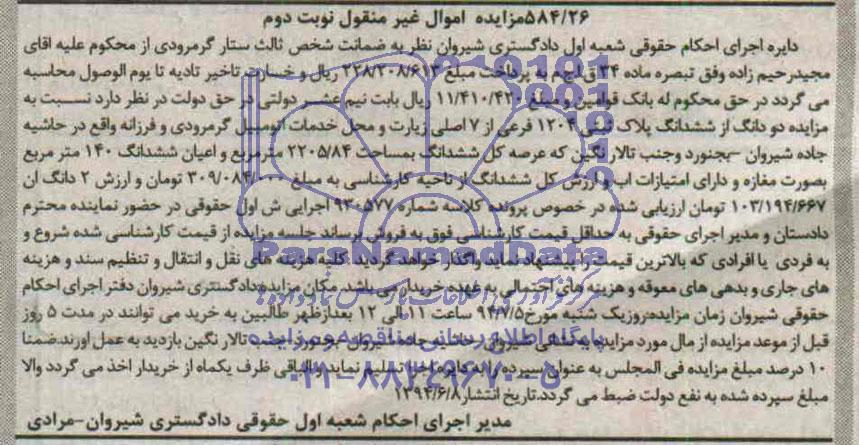 ۵۸۴/۲۶مزایده اموال غیر منقول نوبت دوم
دایره اجرای احکام حقوقی شعبه اول دادگستری شیروان نظر به ضمانت شخص ثالث ستار گرمرودی از محکوم علیه اقای
مجیدرحیم زاده وفق تبصره ماده ۳۴ ق.ا.ج.م به پرداخت مبلغ ۲۲۸/۲۰۸/۶۱۳ ریال و خسارت تاخیر تادیه تا یوم الوصول محاسبه
می گردد در حق محکوم له بانک قوامین و مبلغ ۱۱/۴۱۰/۴۳۰ ریال بابت نیم عشر دولتی در حق دولت در نظر دارد نسبت به
مزایده دو دانگ از ششدانگ پلاک ثبتی ۱۲۰۴ فرعی از ۷ اصلی زیارت و محل خدمات اتومبیل گرمرودی و فرزانه واقع در حاشیه
جاده شیروان -بجنورد وجنب تالار نگین که عرصه کل ششدانگ بمساحت ۲۲۰۵/۸۴ مترمربع و اعیان ششدانگ ۱۴۰ متر مربع
بصورت مغازه و دارای امتیازات اب و ارزش کل ششدانگ از ناحیه کارشناسی به مبلغ ۳۰۹/۰۸۴/۰۰۰ تومان و ارزش ۲ دانگ ان
۱۰۳/۱۹۴/۶۶۷ تومان ارزیابی شده در خصوص پرونده کلاسه شماره ۹۳۰۵۷۷ اجرایی ش اول حقوقی در حضور نماینده محترم
دادستان و مدیر اجرای حقوقی به حداقل قیمت کارشناسی فوق به فروش برساند جلسه مزایده از قیمت کارشناسی شده شروع و
به فردی یا افرادی که بالاترین قیمت را پیشنهاد نماید واگذار خواهد گردید. کلیه هزینه های نقل و انتقال و تنظیم سند و هزینه
های جاری و بدهی های معوقه و هزینه های احتمالی به عهده خریدار می باشد. مکان مزایده:دادگستری شیروان دفتر اجرای احکام
حقوقی شیروان زمان مزایده:روزیک شنبه مورخ۹۴/۷/۵ ساعت ۱۱الی ۱۲ بعدازظهر طالبین به خرید می توانند در مدت ۵ روز
قبل از موعد مزایده از مال مورد مزایده به نشانی شیروان حاشیه جاده شیروان بجنورد جنب تالار نگین بازدید به عمل اورند.ضمنا
۱۰ درصد مبلغ مزایده فی المجلس به عنوان سپرده را به دایره اجرا تسلیم نماید والباقی ظرف یکماه از خریدار اخذ می گردد والا
مبلغ سپرده شده به نفع دولت ضبط می گردد.تاریخ انتشار۱۳۹۴/۶/۸
مدیر اجرای احکام شعبه اول حقوقی دادگستری شیروان-مرادی
ParsNamadData
پایگاه اطلاع رسانی مناقصه و مزایده
۰۲۱-۸۸۳۴۹۶۷۰-۵